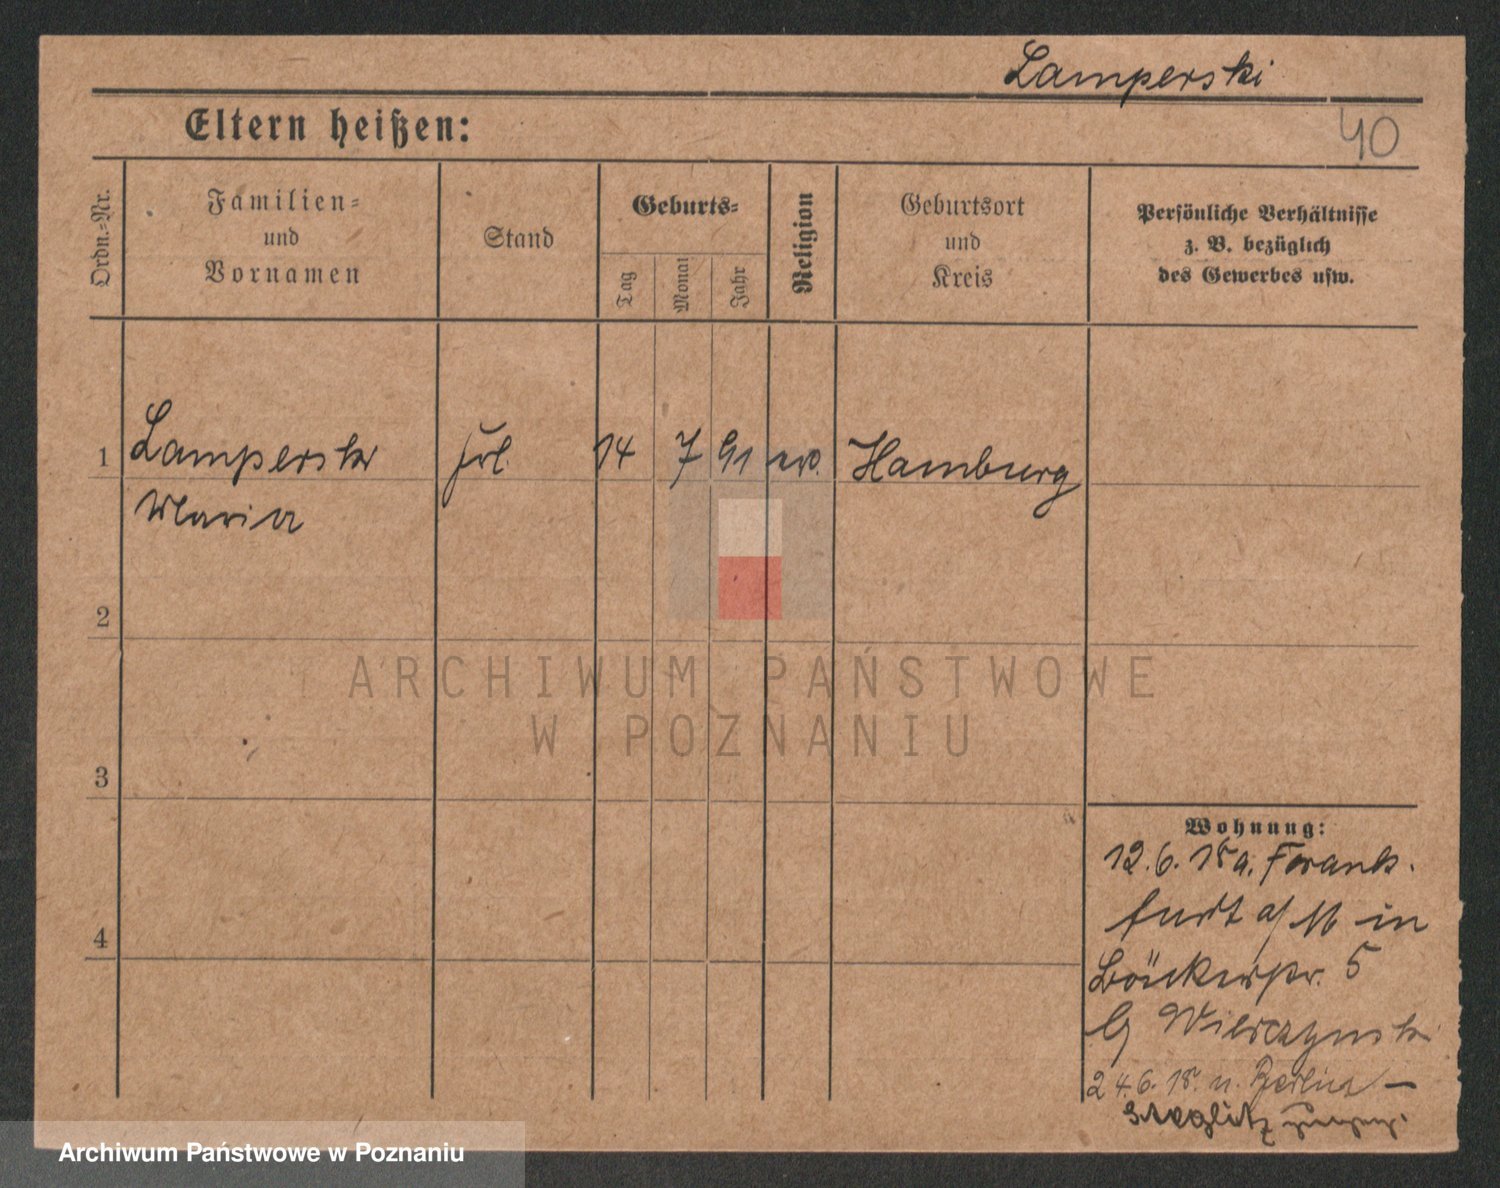 Lamperski
40
Eltern heißen:
Ordn.-Nr.
Familien-
und
Vornamen
Stand
Geburts-
Tag
Monat
Jahr
Religion
Geburtsort
und
Kreis
Persönliche Verhältnisse
z. B. bezüglich
des Gewerbes usw.
1 Lamperski Frl. 14 7 91 ev. Hamburg
Maria
2
3
4
Wohnung:
12.6.18 a. Frank-
furt a/M in
Bäckerstr. 5
b/ Wierczynski
24.6.18. n. Berlin –
Steglitz
ARCHIWUM PAŃSTWOWE
W POZNANIU
Archiwum Państwowe w Poznaniu